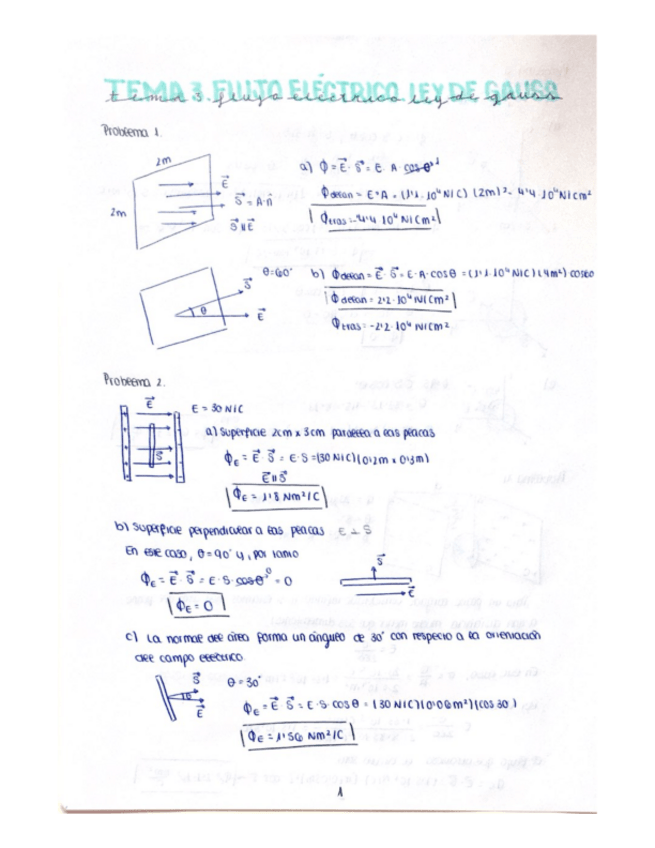 TEMA 3. FLUJO ELÉCTRICO. LEY DE GAUSS
Tema 3. flujo eléctrico ley de gauss
Problema 1.
2m
2m
E⃗
S⃗ = A·n̂
S⃗ ∥ E⃗
a) Φ = E⃗ · S⃗ = E · A · cosθ 1
Φdelan = E·A = (1'1 · 10⁴ N/C) (2m)² = 4'4 · 10⁴ N/Cm²
Φtras = -4'4 · 10⁴ N/Cm²
θ=60°
S⃗
θ
E⃗
b) Φdelan = E⃗ · S⃗ = E·A·cosθ = (1'1 · 10⁴ N/C) (4m²) cos60
Φdelan = 2'2 · 10⁴ N/Cm²
Φtras = -2'2 · 10⁴ N/Cm²
Problema 2.
E⃗
S⃗
E = 30 N/C
a) Superficie 2cm x 3cm paralela a las placas
ΦE = E⃗ · S⃗ = E·S = (30 N/C)(0'2m x 0'3m)
E⃗ ∥ S⃗
ΦE = 1'8 Nm²/C
b) Superficie perpendicular a las placas E ⊥ S
En este caso, θ=90° y, por tanto
ΦE = E⃗ · S⃗ = E·S·cosθ 0 = 0
ΦE = 0
S⃗
E⃗
c) La normal del área forma un ángulo de 30° con respecto a la orientación
del campo eléctrico.
S⃗
E⃗
θ = 30°
ΦE = E⃗ · S⃗ = E·S·cosθ = (30 N/C)(0'06m²)(cos30)
ΦE = 1'56 Nm²/C
1